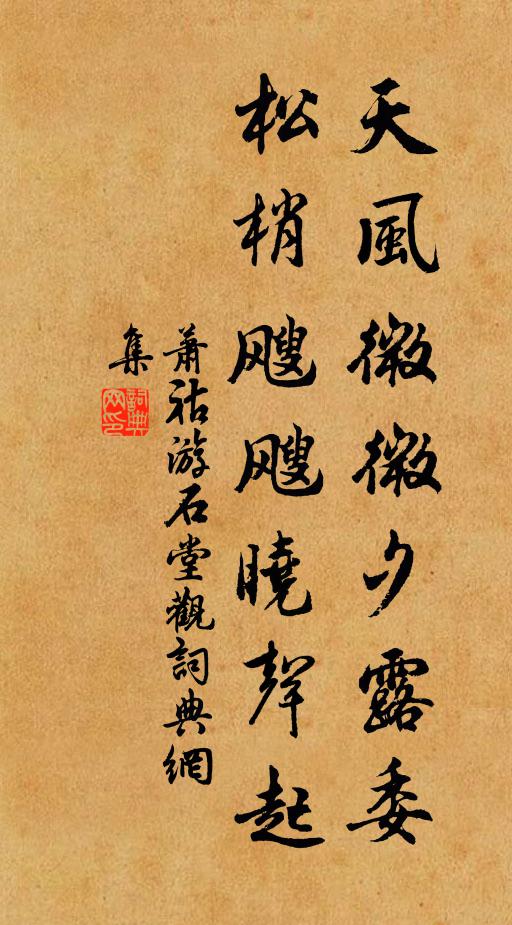 天風微微夕露委
松梢飕飕曉聲起
蕭祜游石堂觀詞典網
集
詞典
网印